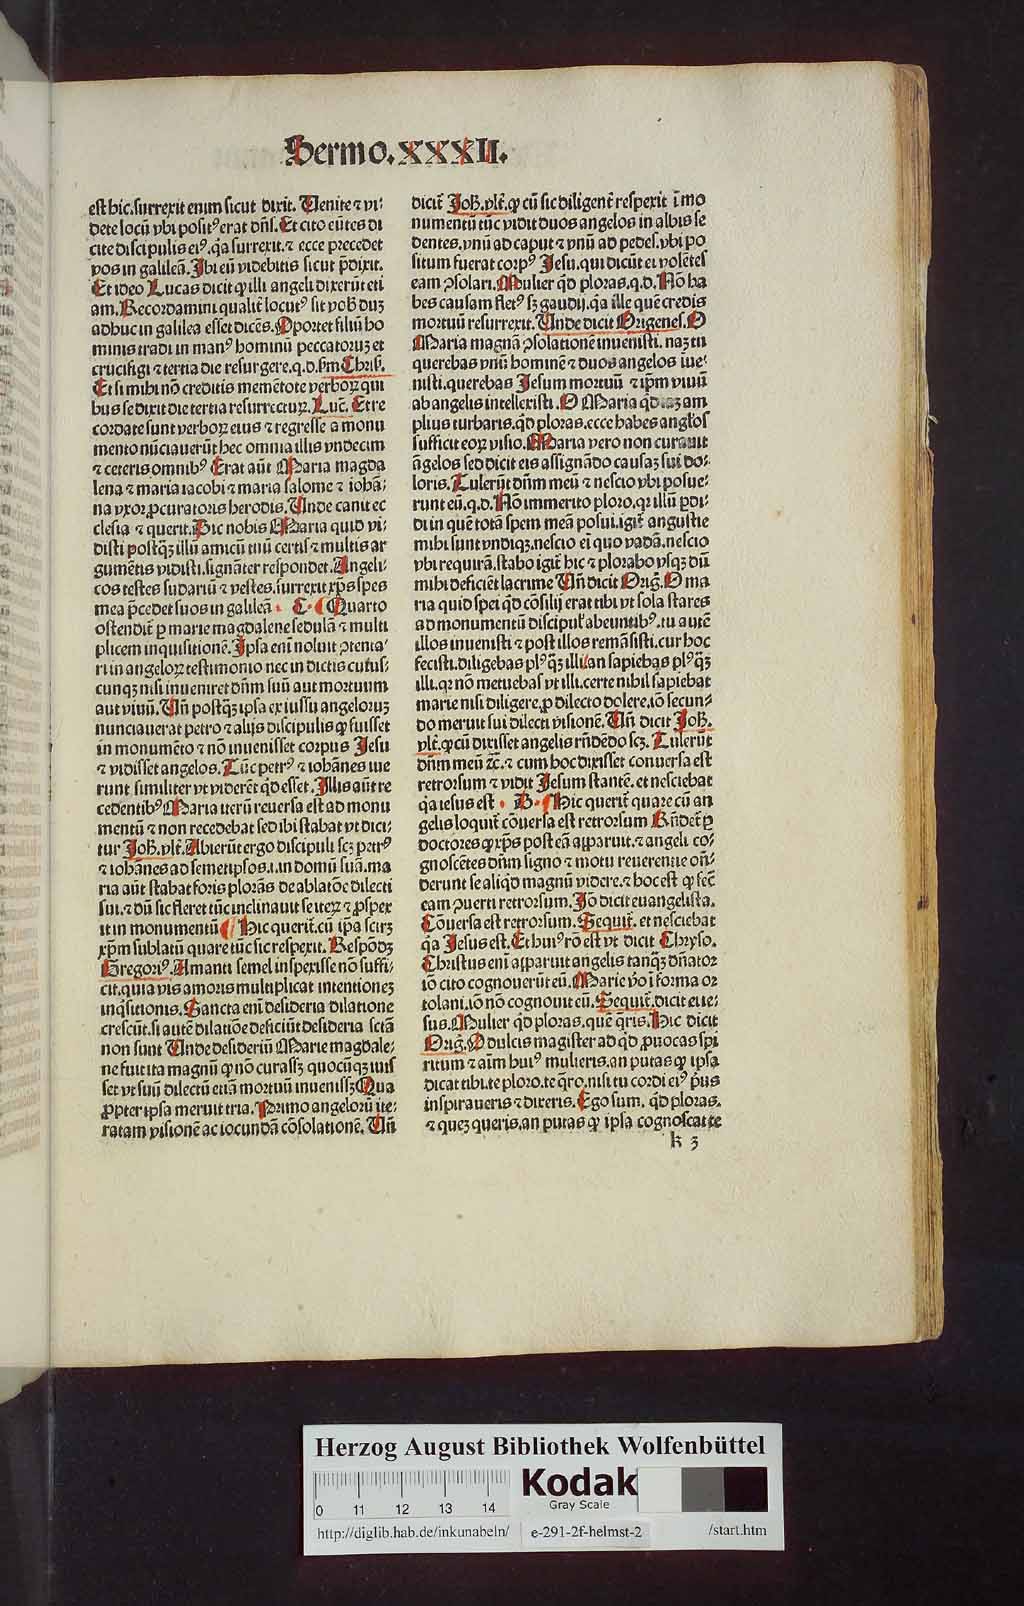 Sermo.XXXII.
est hic.surrexit enim sicut dixit. Uenite ⁊ vi⸗
dete locū vbi positꝰ erat dn̄s. Et cito eūtes di
cite discipulis eiꝰ.q̇a surrexit.⁊ ecce precedet
vos in galileā. Ibi eū videbitis sicut p̄dixit.
Et ideo Lucas dicit ꝙ illi angeli dixerūt eti
am. Recordamini qualit̄ locutꝰ sit vob̄ duꝫ
adhuc in galilea esset dicēs. Oportet filiū ho
minis tradi in manꝰ hominū peccatoruꝫ et
crucifigi ⁊ tertia die resurgere.q.d.ẜm Chriſ.
Et si mihi nō creditis memētote verboꝝ qui
bus se dixit die tertia resurrecturꝝ. Luc̄. Et re
cordate sunt verboꝝ eius ⁊ regresse a monu
mento nūciauerūt hec omnia illis vndecim
⁊ ceteris omnibꝰ Erat aūt Maria magda
lena ⁊ maria iacobi ⁊ maria salome ⁊ iohā⸗
na vxor ꝓcuratoris herodis. Unde canit ec
clesia ⁊ querit. Dic nobis Maria quid vi⸗
disti postq̄ꝫ illū amicū tuū certis ⁊ multis ar
gumētis vidisti.signāter respondet. Angeli⸗
cos testes sudariū ⁊ vestes.surrexit xp̄s spes
mea p̄cedet suos in galileā . C. ¶ Quarto
ostendit̄ ꝑ marie magdalene sedulā ⁊ multi
plicem inquisitionē. Ipsa eni noluit ↄtenta⸗
ri in angeloꝝ testimonio nec in dictis cuius⸗
cunqꝫ nisi inueniret dn̄m suū aut mortuum
aut viuū. Un̄ postq̄ꝫ ipsa ex iussu angeloruꝫ
nunciauerat petro ⁊ alijs discipulis ꝙ fuisset
in monumēto ⁊ nō inuenisset corpus Jesu
⁊ vidisset angelos. Tūc petrꝰ ⁊ iohānes iue
runt similiter vt viderēt qd̄ esset. Illis aūt re
cedentibꝰ Maria iterū reuersa est ad monu
mentū ⁊ non recedebat sed ibi stabat vt dici⸗
tur Joh̄.vlt̄. Abierūt ergo discipuli scꝫ petrꝰ
⁊ iohānes ad semetipsos.i.in domū suā.ma
ria aūt stabat foris plorās de ablatōe dilecti
sui.⁊ dū sic fleret tūc inclinauit se iteꝝ ⁊ ꝓspex
it in monumentū ¶ Hic querit̄.cū ip̄a sciret
xp̄m sublatū quare tūc sic respexit. Respōdꝫ
Gregoriꝰ. Amanti semel inspexisse nō suffi⸗
cit.quia vis amoris multiplicat intentioneꝫ
inq̇sitionis. Sancta eni desideria dilatione
crescūt.si autē dilatiōe deficiūt desideria sctā
non sunt Unde desideriū Marie magdale⸗
ne fuit ita magnū ꝙ nō curassꝫ quocūqꝫ iuis
set vt suū dilectū etiā mortuū inuenissꝫ Qua
ꝓpter ipsa meruit tria. Primo angeloꝝ ite⸗
ratam visionē ac iocundā cōsolationē. Un̄
dicit̄ Joh̄.vlt̄.ꝙ cū sic diligent̄ respexit ī mo
numentū tūc vidit duos angelos in albis se
dentes.vnū ad caput ⁊ vnū ad pedes.vbi po
situm fuerat corpꝰ Jesu.qui dicūt ei volētes
eam ↄsolari. Mulier qd̄ ploras.q.d. Nō ha
bes causam fletꝰ sꝫ gaudij.q̇a ille quē credis
mortuū resurrexit. Unde dicit Origenes. O
Maria magnā ↄsolationē inuenisti.naꝫ tu
querebas vnū hominē ⁊ duos angelos iue⸗
nisti.querebas Jesum mortuū ⁊ ip̄m viuū
ab angelis intellexisti. O Maria qd̄ iaꝫ am
plius turbaris.qd̄ ploras.ecce habes angl̄os
sufficit eoꝝ visio. Maria vero non curauit
āgelos sed dicit eis assignādo causaꝫ sui do⸗
loris. Tulerūt dn̄m meū ⁊ nescio vbi posue⸗
runt eū.q.d. Nō immerito ploro.qꝛ illū ꝑdi⸗
di in quē totā spem meā posui.igit̄ angustie
mihi sunt vndiqꝫ.nescio ei quo vadā.nescio
vbi requirā.stabo igit̄ hic ⁊ plorabo vsqꝫ dū
mihi deficiēt lacrime Un̄ dicit Oriḡ. O ma
ria quid spei qd̄ cōsilij erat tibi vt sola stares
ad monumentū discipul̄ abeuntibꝰ.tu autē
illos inuenisti ⁊ post illos remāsisti.cur hoc
fecisti.diligebas plꝰ q̄ꝫ illi/an sapiebas plꝰ q̄ꝫ
illi.qꝛ nō metuebas vt illi.certe nihil sapiebat
marie nisi diligere.ꝓ dilecto dolere.iō secun⸗
do meruit sui dilecti visionē. Un̄ dicit Joh̄.
vlt̄.ꝙ cū dixisset angelis rn̄dēdo scꝫ. Tulerūt
dn̄m meū ⁊c̄.⁊ cum hoc dixisset conuersa est
retrorsum ⁊ vidit Jesum stantē.et nesciebat
q̇a iesus est . B. ¶ Hic querit̄ quare cū an
gelis loquit̄ cōuersa est retrorsum Rn̄det̄ ꝑ
doctores ꝙ xp̄s post eā apparuit.⁊ angeli co⸗
gnoscētes dn̄m signo ⁊ motu reuerentie on̄⸗
derunt se aliqd̄ magnū videre.⁊ hoc est ꝙ fec̄
eam ↄuerti retrorsum. Jō dicit euangelista.
Cōuersa est retrorsum. Sequit̄.et nesciebat
q̇a Jesus est. Et huiꝰ rō est vt dicit Chryso.
Christus eni apparuit angelis tanq̄ꝫ dn̄ator
iō cito cognouerūt eū. Marie v̊o ī forma or
tolani.iō nō cognouit eū. Sequit̄.dicit ei ie⸗
sus. Mulier qd̄ ploras.quē q̄ris. Hic dicit
Oriḡ. O dulcis magister ad qd̄ ꝓuocas spi
ritum ⁊ aīm huiꝰ mulieris.an putas ꝙ ip̄sa
dicat tibi.te ploro.te q̄ro.nisi tu cordi eiꝰ p̄us
inspiraueris ⁊ dixeris. Ego sum. qd̄ ploras.
⁊ queꝫ queris.an putas ꝙ ip̄sa cognoscat te
k 3
Herzog August Bibliothek Wolfenbüttel
0 11 12 13 14
Kodak
Gray Scale
http://diglib.hab.de/inkunabeln/ e-291-2f-helmst-2 /start.htm